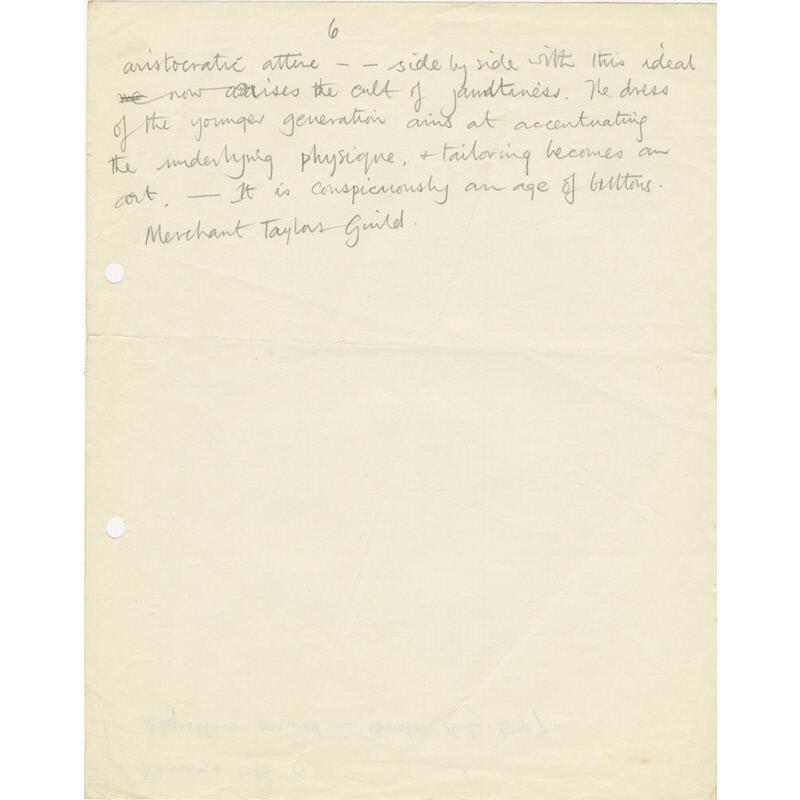 6
aristocratic attire – – side by side with this ideal
we now arises the cult of jauntiness. The dress
of the younger generation aims at accentuating
the underlying physique, + tailoring becomes an
art. — It is conspicuously an age of buttons.
Merchant Taylors Guild.